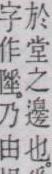 於堂之邊也
字作陞乃由